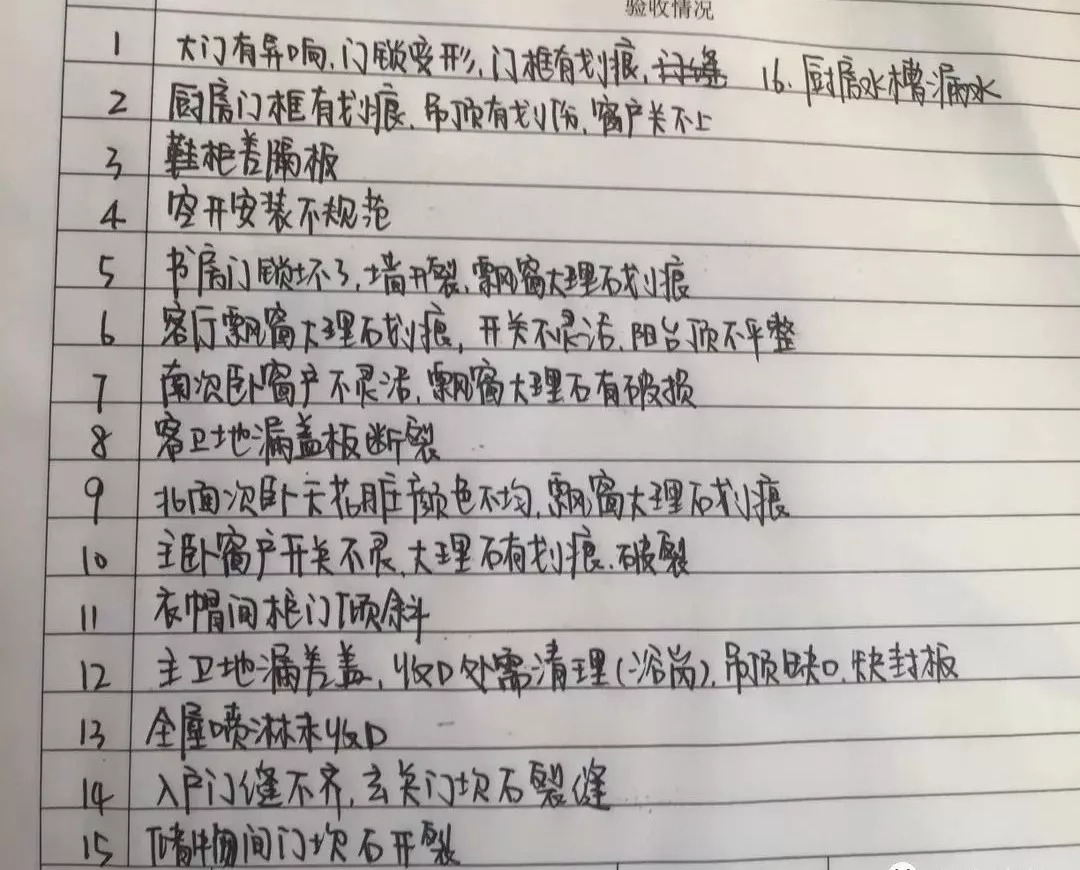 验收情况
1 大门有异响,门锁变形,门框有划痕,门缝 16.厨房水槽漏水
2 厨房门框有划痕.吊顶有划伤,窗户关不上
3 鞋柜差隔板
4 空开安装不规范
5 书房门锁坏了,墙开裂,飘窗大理石划痕
6 客厅飘窗大理石划痕,开关不灵活,阳台顶不平整
7 南次卧窗户不灵活,飘窗大理石有破损
8 客卫地漏盖板断裂
9 北面次卧天花脏颜色不均,飘窗大理石划痕
10 主卧窗户开关不灵,大理石有划痕.破裂
11 衣帽间柜门倾斜
12 主卫地漏差盖,收口处需清理(浴岗),吊顶缺口,快封板
13 全屋喷淋未收口
14 入户门缝不齐,玄关门坎石裂缝
15 储物间门坎石开裂